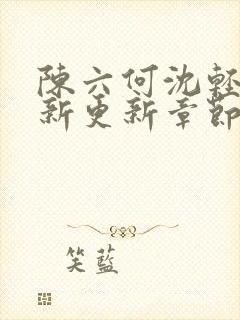 陳六何沈輕
新更新章節
笑藍